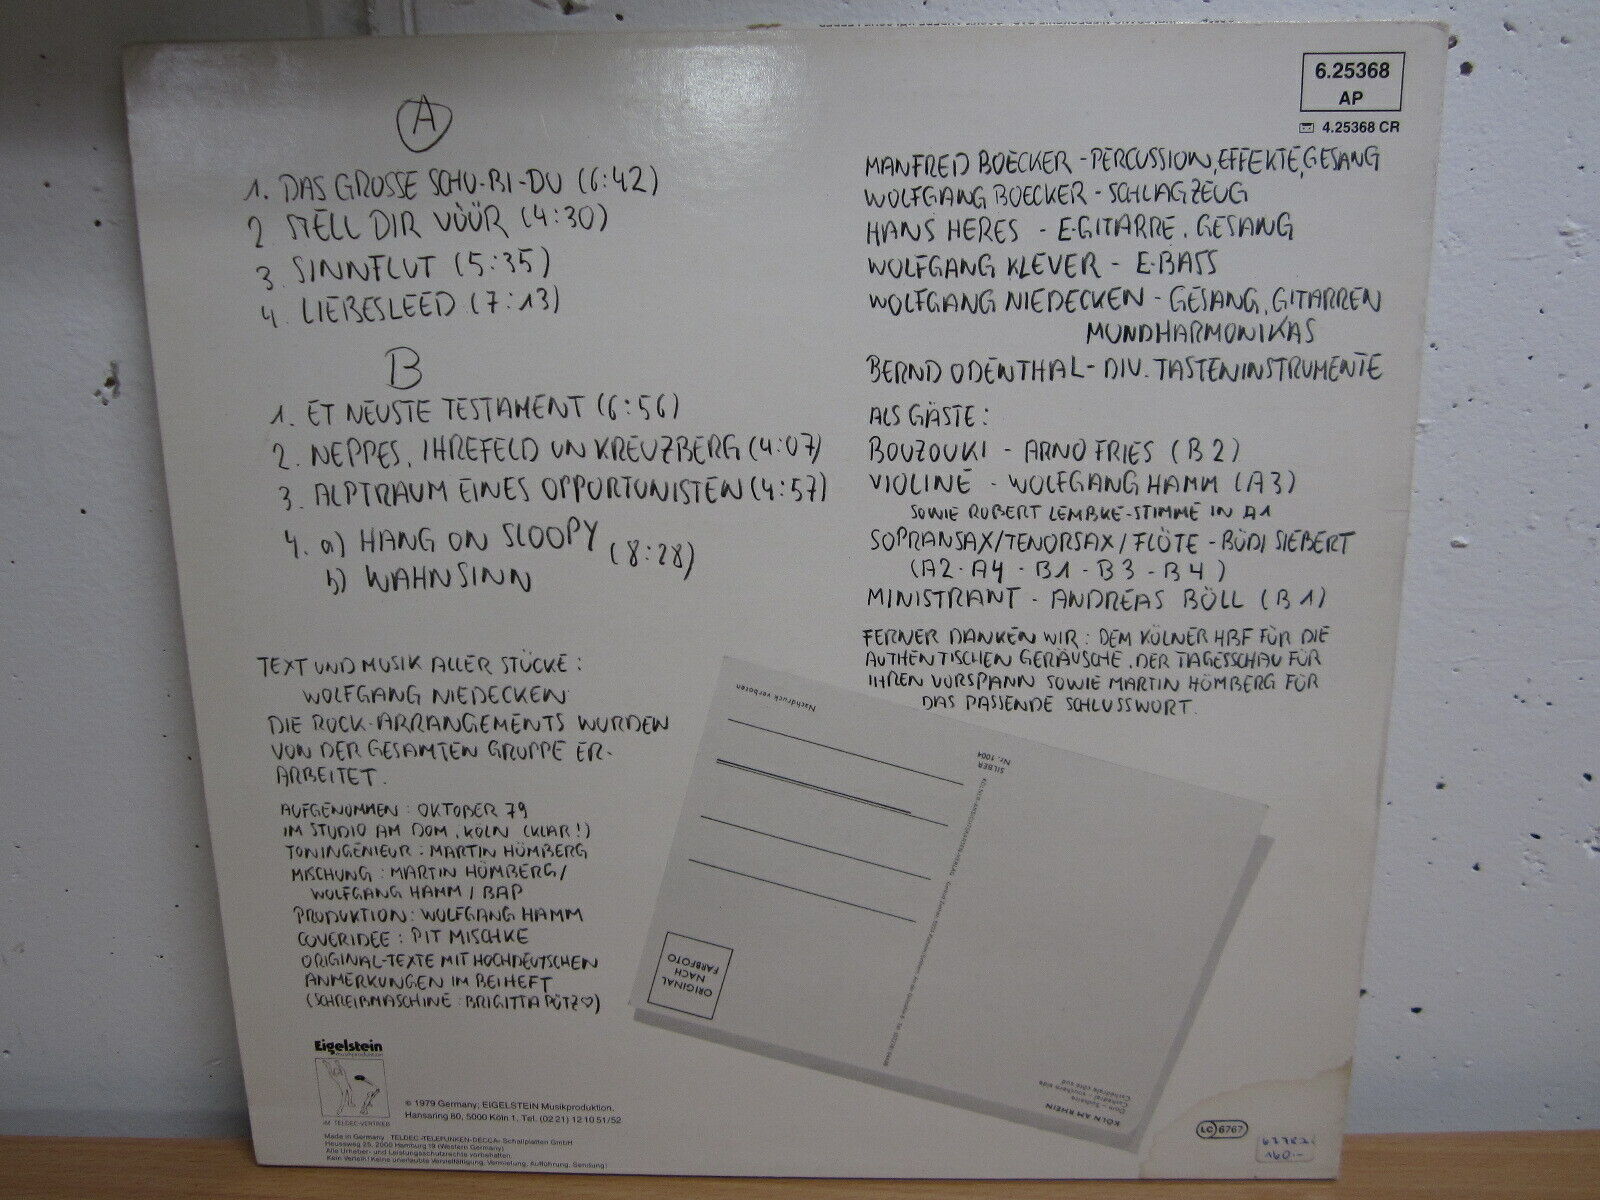 A
1. DAS GROSSE SCHU-BI-DU (6:42)
2 STELL DIR VÜÜR (4:30)
3. SINNFLUT (5:35)
4. LIEBESLEED (7:13)
B
1. ET NEUSTE TESTAMENT (6:56)
2. NEPPES, IHREFELD UN KREUZBERG (4:07)
3. ALPTRAUM EINES OPPORTUNISTEN (4:57)
4. a) HANG ON SLOOPY
(8:28)
b) WAHNSINN
TEXT UND MUSIK ALLER STÜCKE:
WOLFGANG NIEDECKEN
DIE ROCK-ARRANGEMENTS WURDEN
VON DER GESAMTEN GRUPPE ER-
ARBEITET.
AUFGENOMMEN: OKTOBER 79
IM STUDIO AM DOM, KÖLN (KLAR!)
TONINGENIEUR: MARTIN HÖMBERG
MISCHUNG: MARTIN HÖMBERG/
WOLFGANG HAMM / BAP
PRODUKTION: WOLFGANG HAMM
COVERIDEE: PIT MISCHKE
ORIGINAL-TEXTE MIT HOCHDEUTSCHEN
ANMERKUNGEN IM BEIHEFT
(SCHREIBMASCHINE: BRIGITTA PÜTZ♡)
Eigelstein
musikproduktion
IM TELDEC-VERTRIEB
℗ 1979 Germany; EIGELSTEIN Musikproduktion.
Hansaring 80, 5000 Köln 1, Tel. (02 21) 12 10 51/52
Made in Germany · TELDEC »TELEFUNKEN-DECCA« Schallplatten GmbH
Heussweg 25, 2000 Hamburg 19 (Western Germany)
Alle Urheber- und Leistungsschutzrechte vorbehalten.
Kein Verleih! Keine unerlaubte Vervielfältigung, Vermietung, Aufführung, Sendung!
6.25368
AP
4.25368 CR
MANFRED BOECKER - PERCUSSION, EFFEKTE, GESANG
WOLFGANG BOECKER - SCHLAGZEUG
HANS HERES - E-GITARRE, GESANG
WOLFGANG KLEVER - E-BASS
WOLFGANG NIEDECKEN - GESANG, GITARREN
MUNDHARMONIKAS
BERND ODENTHAL - DIV. TASTENINSTRUMENTE
ALS GÄSTE:
BOUZOUKI - ARNO FRIES (B2)
VIOLINE - WOLFGANG HAMM (A3)
SOWIE ROBERT LEMBKE-STIMME IN A1
SOPRANSAX/TENORSAX/FLÖTE - BÜDI SIEBERT
(A2 - A4 - B1 - B3 - B4)
MINISTRANT - ANDREAS BÖLL (B1)
FERNER DANKEN WIR: DEM KÖLNER HBF FÜR DIE
AUTHENTISCHEN GERÄUSCHE, DER TAGESSCHAU FÜR
IHREN VORSPANN SOWIE MARTIN HÖMBERG FÜR
DAS PASSENDE SCHLUSSWORT.
Nachdruck verboten
SILBER
Nr. 1004
ORIGINAL
NACH
FARBFOTO
KÖLN AM RHEIN
Dom – Südseite
Cathedral – southern side
Cathédrale côté sud
LC 6767
160.-